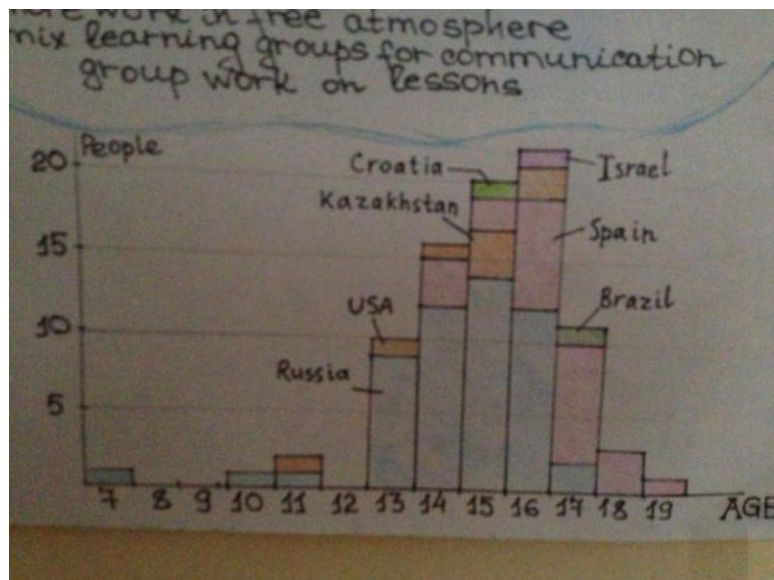 more work in free atmosphere
mix learning groups for communication
group work on lessons
People
20
15
10
5
Croatia
Kazakhstan
USA
Russia
Israel
Spain
Brazil
7 8 9 10 11 12 13 14 15 16 17 18 19 AGE